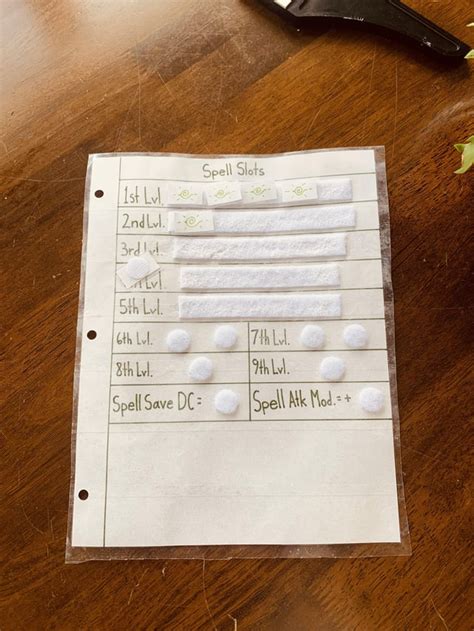 Spell Slots
1st Lvl.
2nd Lvl.
3rd Lvl.
Lvl.
5th Lvl.
6th Lvl. 7th Lvl.
8th Lvl. 9th Lvl.
Spell Save DC = Spell Atk Mod. = +